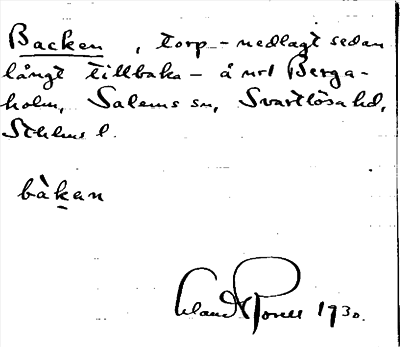 Backen, torp - nedlagt sedan
långt tillbaka - å nr 1 Berga-
holm, Salems sn, Svartlösa hd,
Sthlms l.
bàkan
1930.